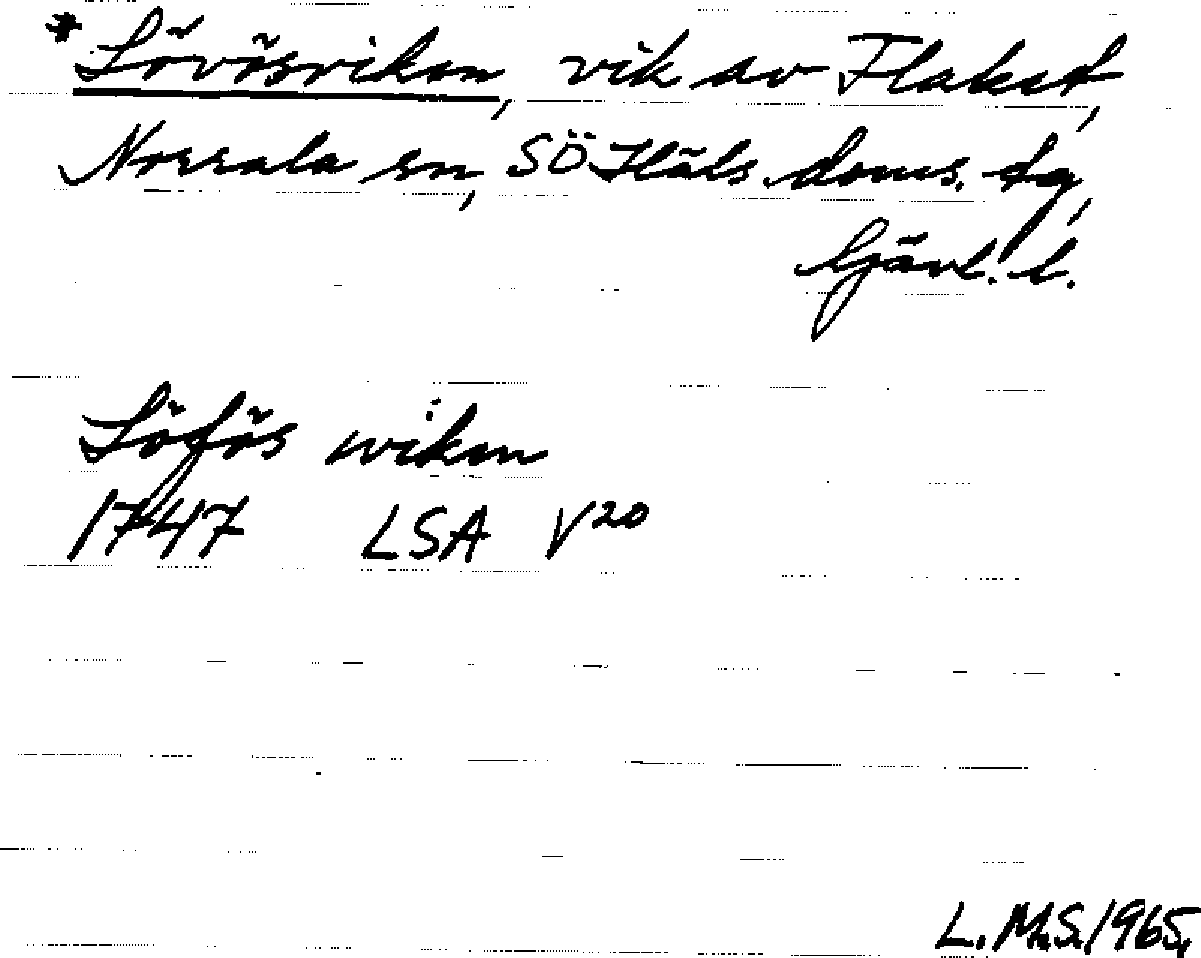 * Lövösviken, vik av Flaket,
Norrala sn, SÖ Häls. doms. tg,
Gävl. l.
Löfös wiken
1747 LSA V20
L. M.S. 1965.